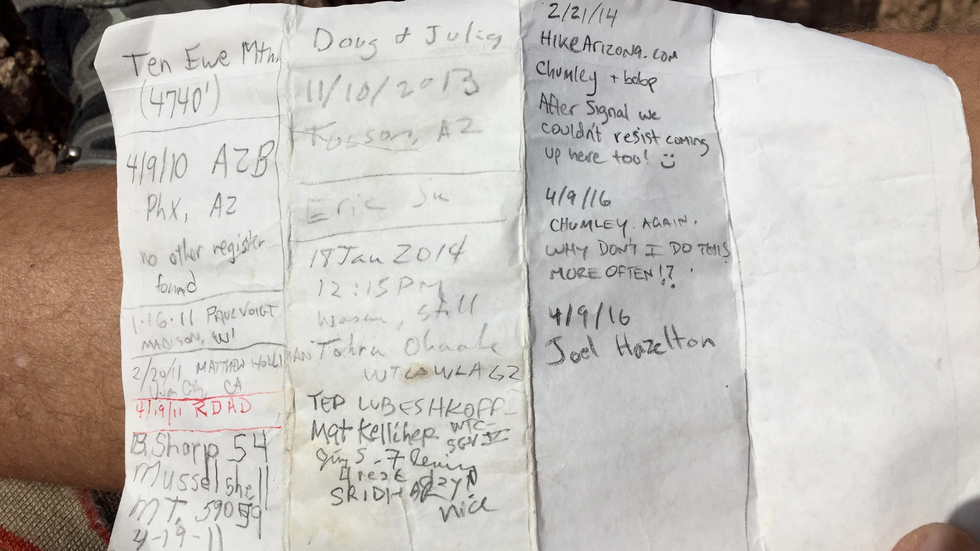 Ten Ewe Mtn.
(4740')
4/9/10 AZB
Phx, AZ
no other register
found
1-16-11 PAUL VOIGT
MADISON, WI
2/20/11 MATTHEW HOLLIMAN
City, CA
4/19/11 RDAD
B. Sharp 54
Musselshell
MT, 59059
4-19-11
Doug & Julie
11/10/2013
Tucson, AZ
Eric Su
18 Jan 2014
12:15 PM
Warm, still
WTC WLA G2
TED LUBESHKOFF
Mat Kelliher WTC-
SGV
great day
SRIDHAR
nice
2/21/14
HikeArizona.com
Chumley + bobp
After Signal we
couldn't resist coming
up here too! :)
4/9/16
CHUMLEY. AGAIN.
WHY DON'T I DO THIS
MORE OFTEN!?
4/9/16
Joel Hazelton